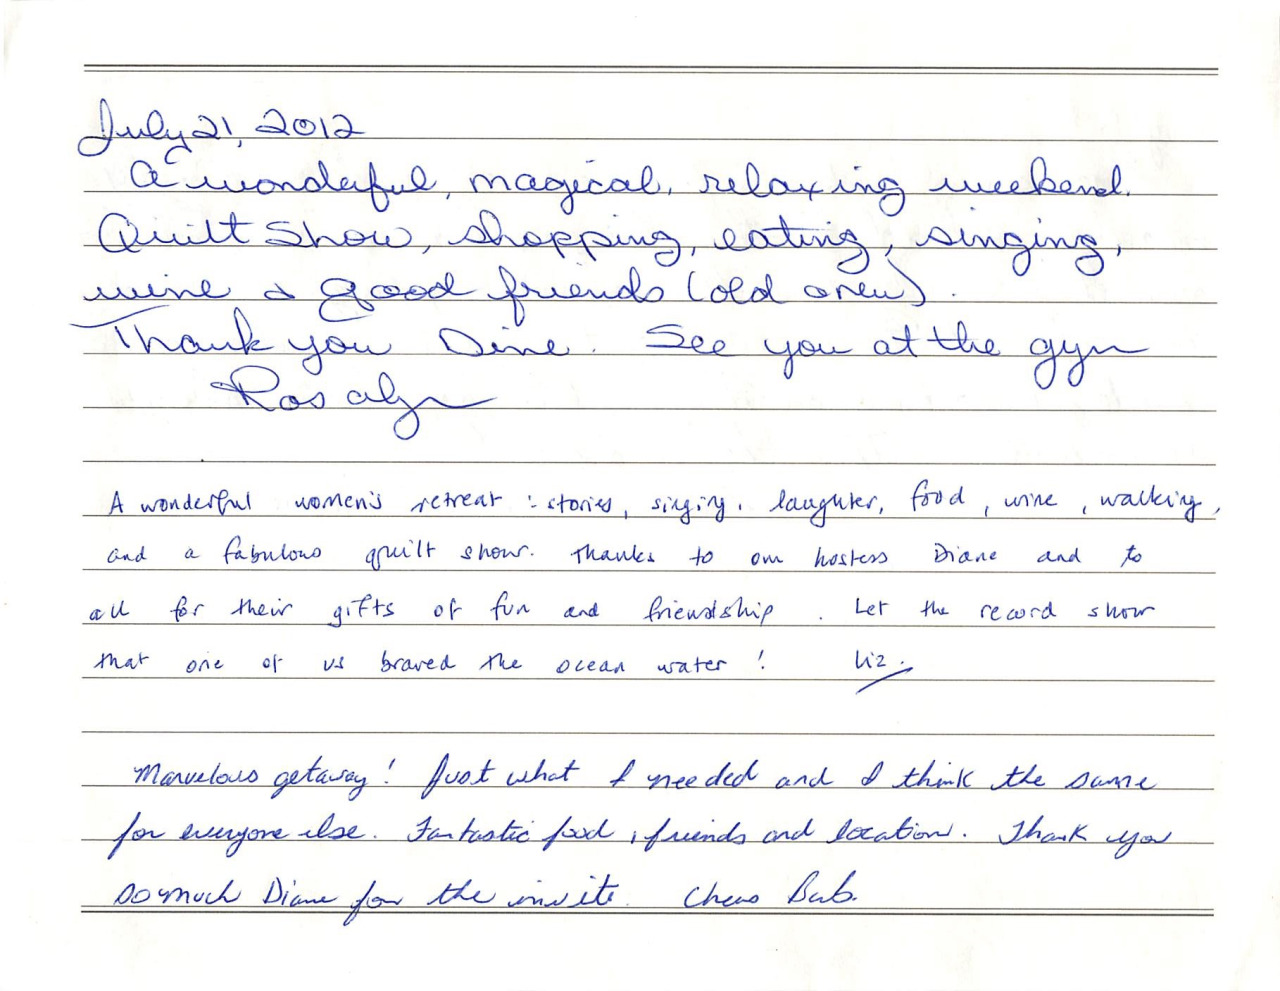 July 21, 2012
A wonderful, magical, relaxing weekend.
Quilt Show, shopping, eating, singing,
wine & good friends (old & new).
Thank you Dine. See you at the gym
Rosalyn
A wonderful women's retreat: stories, singing, laughter, food, wine, walking,
and a fabulous quilt show. Thanks to our hostess Diane and to
all for their gifts of fun and friendship. Let the record show
that one of us braved the ocean water! Liz.
Marvelous getaway! Just what I needed and I think the same
for everyone else. Fantastic food, friends and location. Thank you
so much Diane for the invite. Cheers Barb.